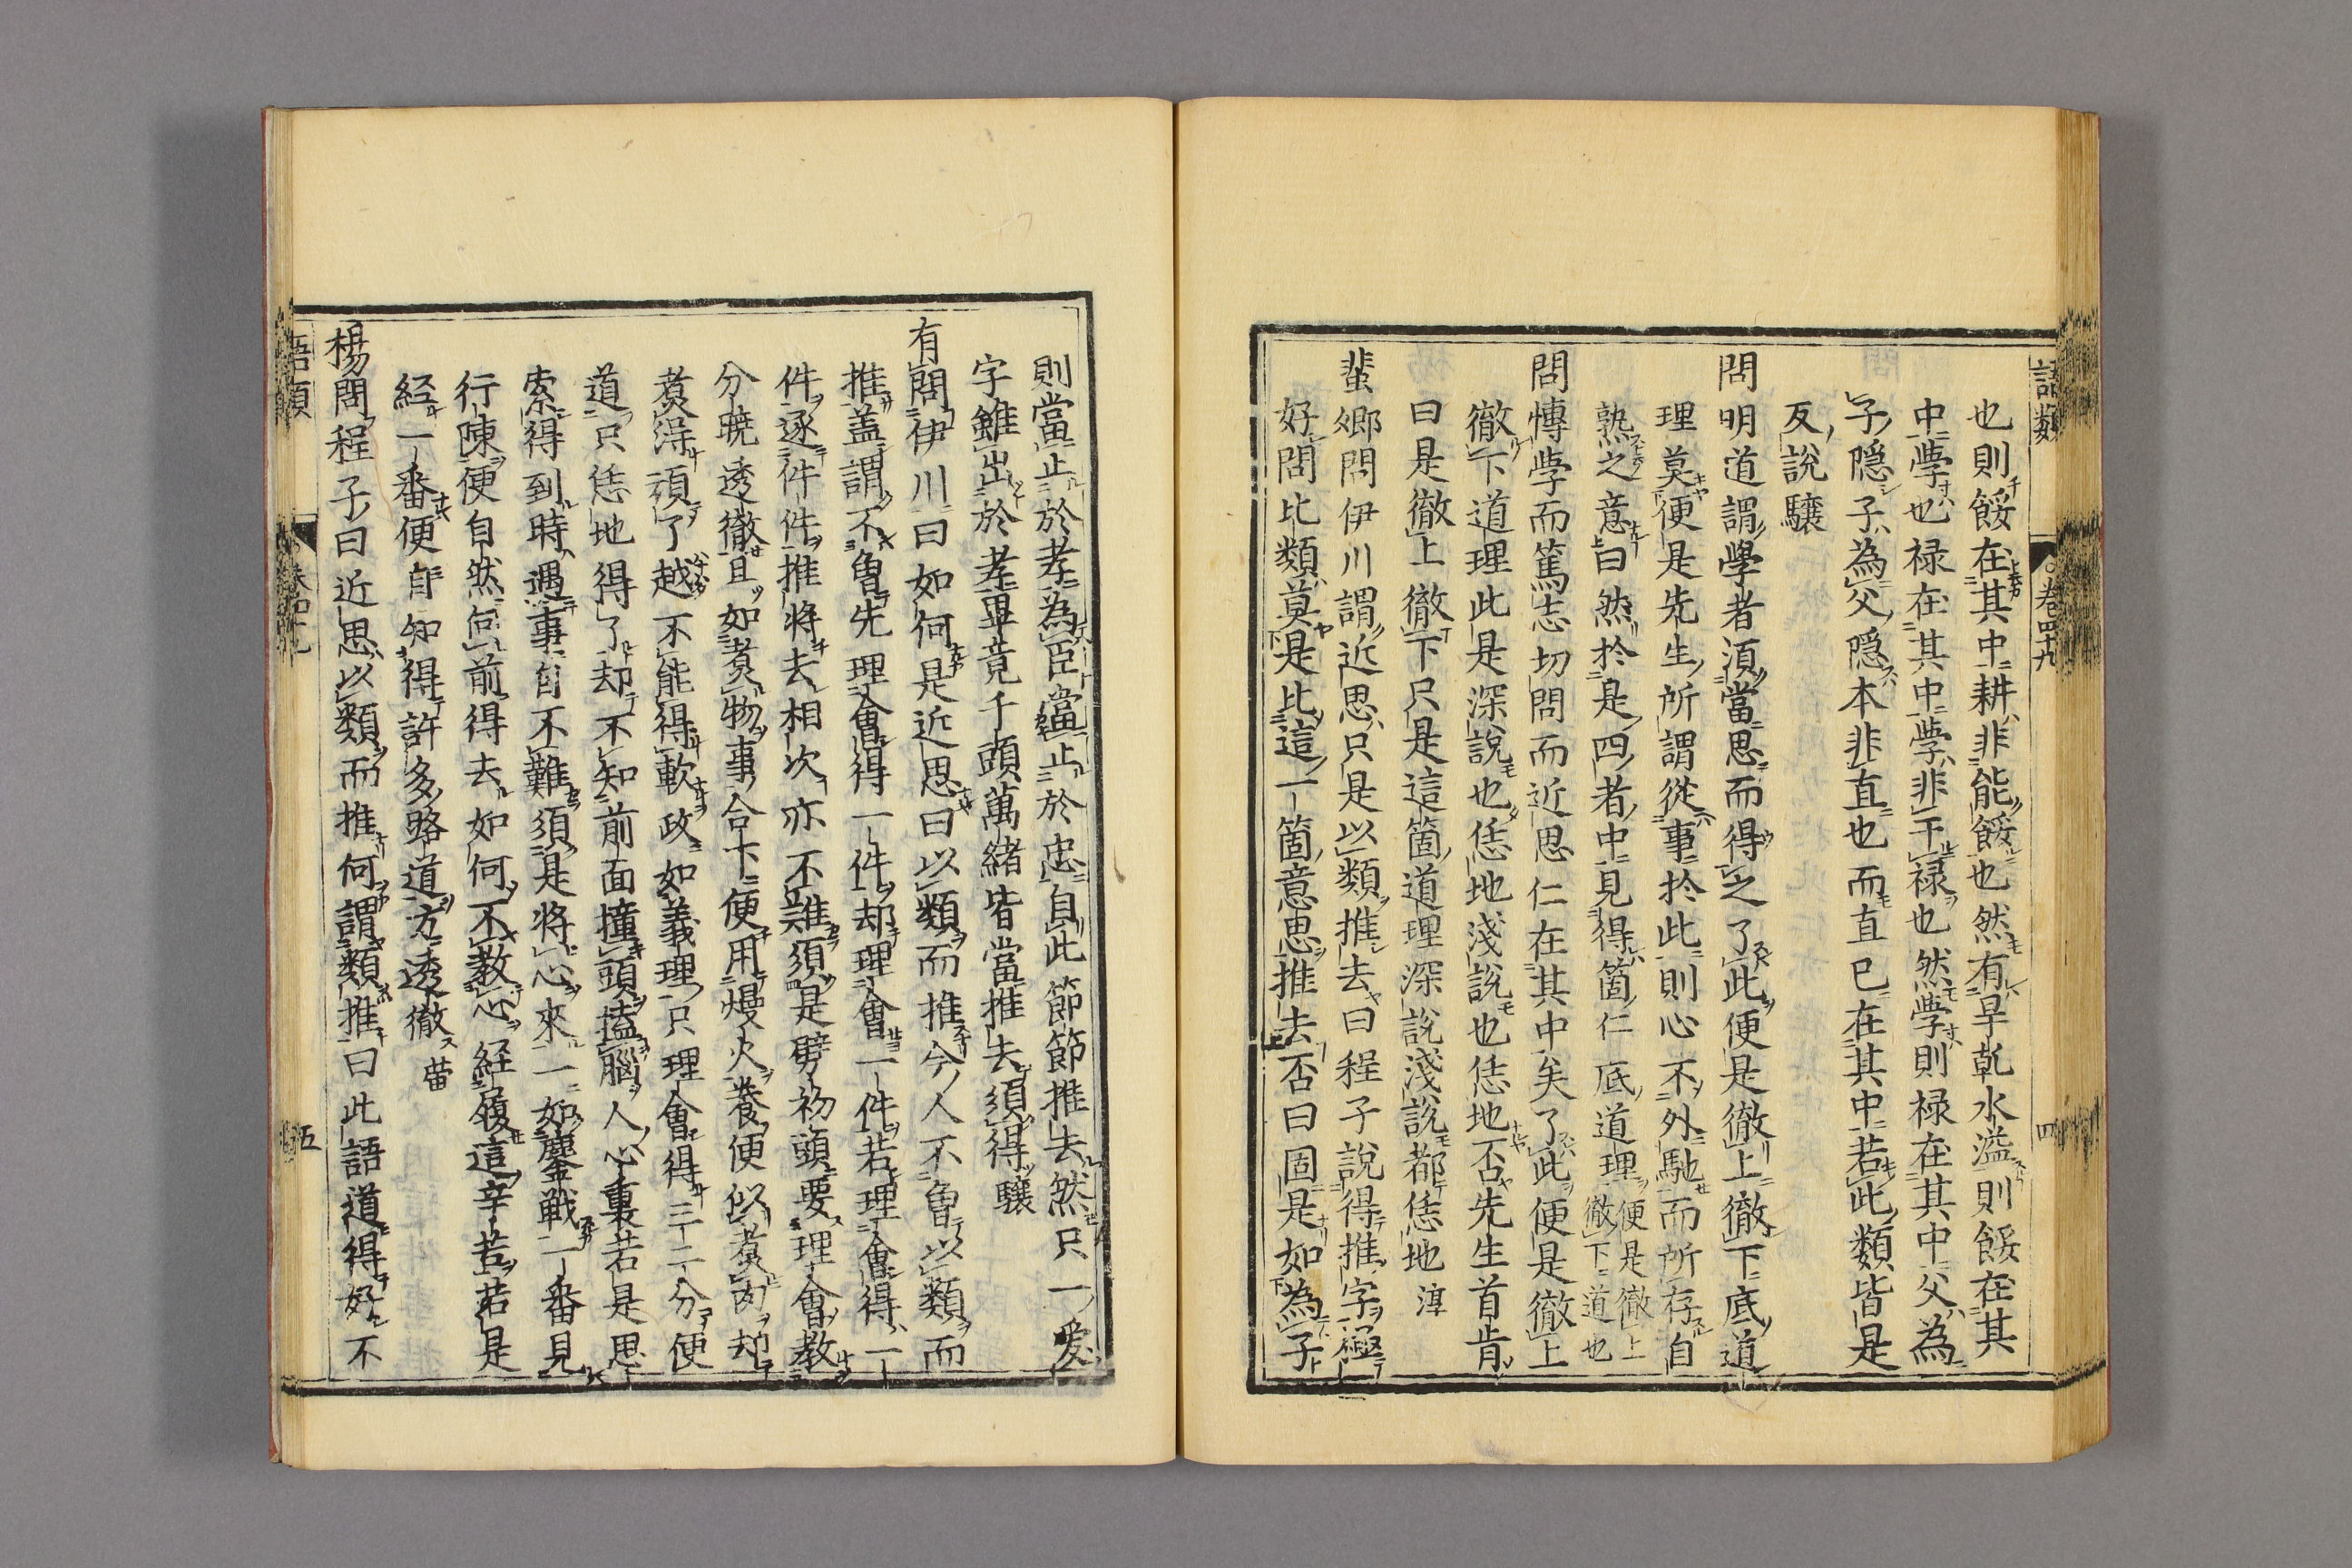 語類
卷四十九
四
也則餒在其中耕非能餒也然有旱乾水溢則餒在其
中學也禄在其中學非干禄也然學則禄在其中父為
子隠子為父隠本非直也而直已在其中若此類皆是
反說驤
問明道謂學者須當思而得之了此便是徹上徹下底道
理莫便是先生所謂從事於此則心不外馳而所存自
熟之意曰然於是四者中見得箇仁底道理便是徹上徹下道也
問愽學而篤志切問而近思仁在其中矣了此便是徹上
徹下道理此是深說也恁地淺說也恁地否先生首肯
曰是徹上徹下只是這箇道理深說淺說都恁地 淳
蜚郷問伊川謂近思只是以類推去曰程子說得推字極
好問比類莫是比這一箇意思推去否曰固是如為子
則當止於孝為臣當止於忠自此節節推去然只一愛
字雖出於孝畢竟千頭萬緒皆當推去須得驤
有問伊川曰如何是近思曰以類而推今人不曾以類而
推盖謂不曾先理會得一件却理會一件若理會得一
件逐件件推將去相次亦不難須是劈初頭要理會教
分暁透徹且如煑物事合下便用熳火養便似煑肉却
煑得頑了越不能得軟政如義理只理會得三二分便
道只恁地得了却不知前面撞頭搕腦人心裏若是思
索得到時遇事自不難須是將心來一如鏖戦一番見
行陳便自然向前得去如何不教心経履這辛苦若是
経一番便自知得許多路道方透徹 𦽏
楊問程子曰近思以類而推何謂類推曰此語道得好不
語類
卷四十九
五